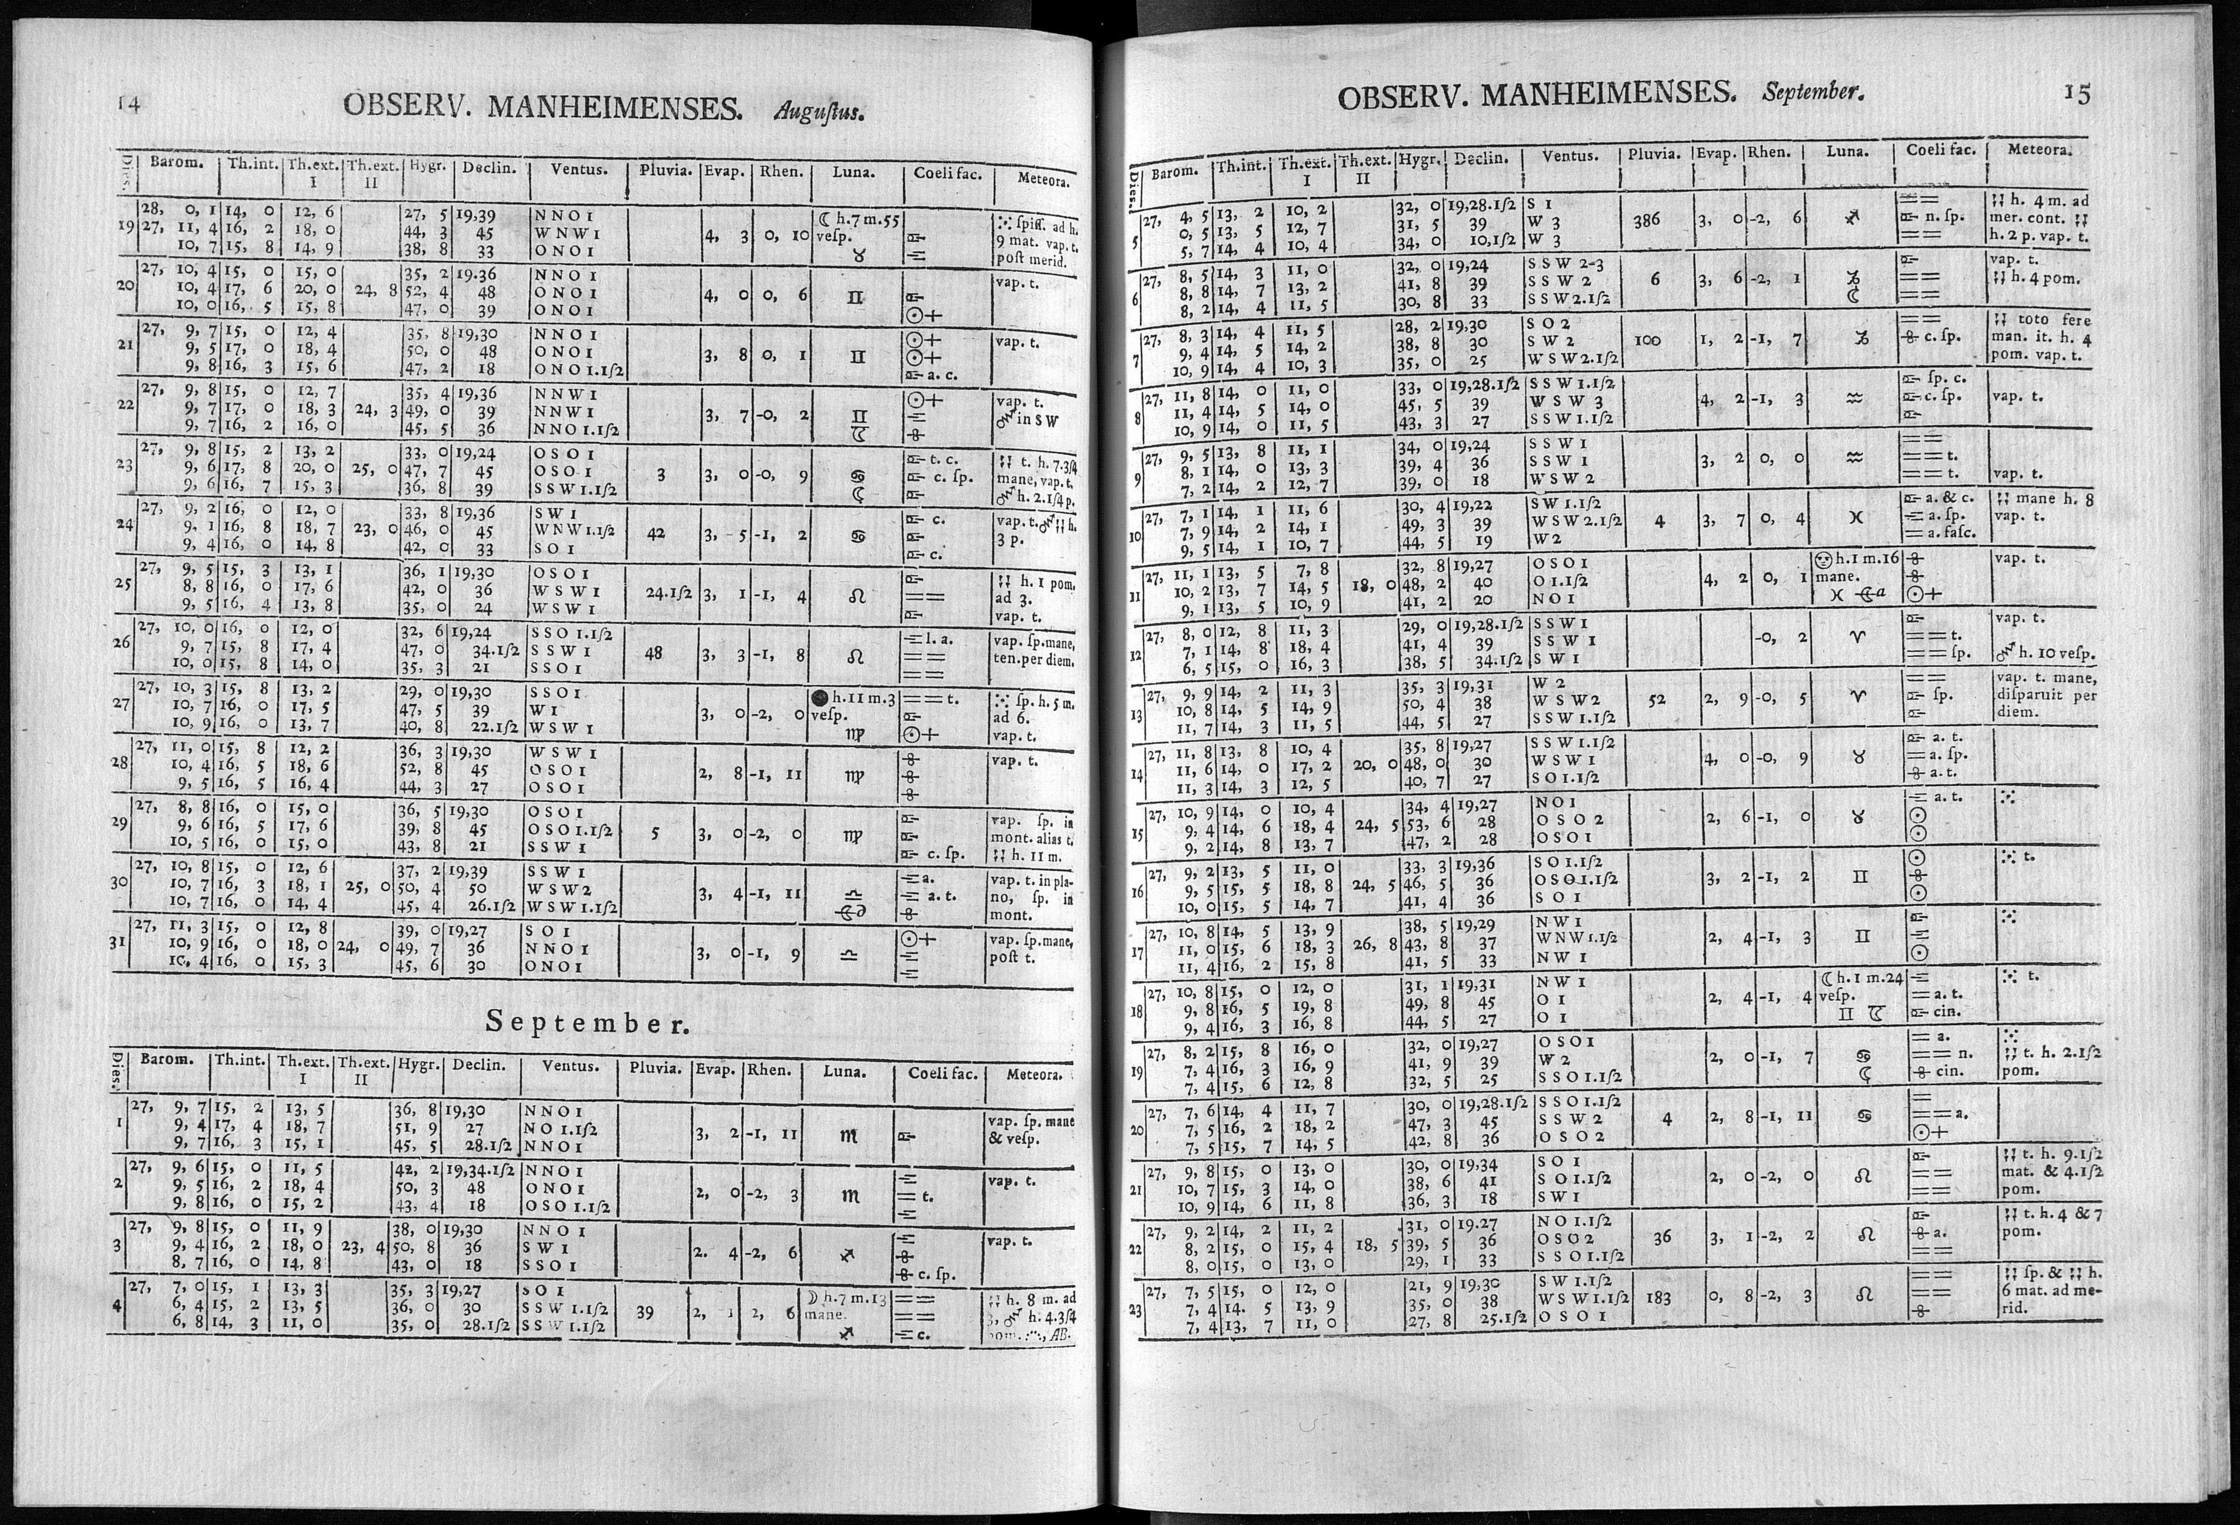 14 OBSERV. MANHEIMENSES. Auguſtus.
Dies. Barom. Th.int. Th.ext. I Th.ext. II Hygr. Declin. Ventus. Pluvia. Evap. Rhen. Luna. Coeli fac. Meteora.
28, 0, 1 14, 0 12, 6 27, 5 19,39 N N O 1 ☾ h. 7 m. 55 ſpiſſ. ad h.
19 27, 11, 4 16, 2 18, 0 44, 3 45 W N W 1 4, 3 0, 10 veſp. 9 mat. vap. t.
10, 7 15, 8 14, 9 38, 8 33 O N O 1 ♉ poſt merid.
27, 10, 4 15, 0 15, 0 35, 2 19.36 N N O 1 vap. t.
20 10, 4 17, 6 20, 0 24, 8 52, 4 48 O N O 1 4, 0 0, 6 ♊
10, 0 16, 5 15, 8 47, 0 39 O N O 1 ☉+
27, 9, 7 15, 0 12, 4 35, 8 19,30 N N O 1 ☉+ vap. t.
21 9, 5 17, 0 18, 4 50, 0 48 O N O 1 3, 8 0, 1 ♊ ☉+
9, 8 16, 3 15, 6 47, 2 18 O N O 1.1/2 a. c.
27, 9, 8 15, 0 12, 7 35, 4 19,36 N N W 1 ☉+ vap. t.
22 9, 7 17, 0 18, 3 24, 3 49, 0 39 N N W 1 3, 7 -0, 2 ♊ in S W
9, 7 16, 2 16, 0 45, 5 36 N N O 1.1/2
27, 9, 8 15, 2 13, 2 33, 0 19,24 O S O 1 t. c. t. h. 7.3/4
23 9, 6 17, 8 20, 0 25, 0 47, 7 45 O S O 1 3 3, 0 -0, 9 ♋ c. ſp. mane, vap. t.
9, 6 16, 7 15, 3 36, 8 39 S S W 1.1/2 h. 2.1/4 p.
27, 9, 2 16, 0 12, 0 33, 8 19,36 S W 1 c. vap. t. h.
24 9, 1 16, 8 18, 7 23, 0 46, 0 45 W N W 1.1/2 42 3, 5 -1, 2 ♋ 3 p.
9, 4 16, 0 14, 8 42, 0 33 S O 1 c.
27, 9, 5 15, 3 13, 1 36, 1 19,30 O S O 1 h. 1 pom.
25 8, 8 16, 0 17, 6 42, 0 36 W S W 1 24.1/2 3, 1 -1, 4 ♌ == ad 3.
9, 5 16, 4 13, 8 35, 0 24 W S W 1 vap. t.
27, 10, 0 16, 0 12, 0 32, 6 19,24 S S O 1.1/2 l. a. vap. ſp. mane,
26 9, 7 15, 8 17, 4 47, 0 34.1/2 S S W 1 48 3, 3 -1, 8 ♌ == ten. per diem.
10, 0 15, 8 14, 0 35, 3 21 S S O 1 ==
27, 10, 3 15, 8 13, 2 29, 0 19,30 S S O 1 ● h. 11 m. 3 == t. ſp. h. 5 m.
27 10, 7 16, 0 17, 5 47, 5 39 W 1 3, 0 -2, 0 veſp. ad 6.
10, 9 16, 0 13, 7 40, 8 22.1/2 W S W 1 ♍ ☉+ vap. t.
27, 11, 0 15, 8 12, 2 36, 3 19,30 W S W 1 vap. t.
28 10, 4 16, 5 18, 6 52, 8 45 O S O 1 2, 8 -1, 11 ♍
9, 5 16, 5 16, 4 44, 3 27 O S O 1
27, 8, 8 16, 0 15, 0 36, 5 19,30 O S O 1 vap. ſp. in
29 9, 6 16, 5 17, 6 39, 8 45 O S O 1.1/2 5 3, 0 -2, 0 ♍ mont. alias t.
10, 5 16, 0 15, 0 43, 8 21 S S W 1 c. ſp. h. 11 m.
27, 10, 8 15, 0 12, 6 37, 2 19,39 S S W 1 a. vap. t. in pla-
30 10, 7 16, 3 18, 1 25, 0 50, 4 50 W S W 2 3, 4 -1, 11 ♎ a. t. no, ſp. in
10, 7 16, 0 14, 4 45, 4 26.1/2 W S W 1.1/2 mont.
27, 11, 3 15, 0 12, 8 39, 0 19,27 S O 1 ☉+ vap. ſp. mane,
31 10, 9 16, 0 18, 0 24, 0 49, 7 36 N N O 1 3, 0 -1, 9 ♎ poſt t.
10, 4 16, 0 15, 3 45, 6 30 O N O 1
September.
Dies. Barom. Th.int. Th.ext. I Th.ext. II Hygr. Declin. Ventus. Pluvia. Evap. Rhen. Luna. Coeli fac. Meteora.
27, 9, 7 15, 2 13, 5 36, 8 19,30 N N O 1 vap. ſp. mane
1 9, 4 17, 4 18, 7 51, 9 27 N O 1.1/2 3, 2 -1, 11 ♏ & veſp.
9, 7 16, 3 15, 1 45, 5 28.1/2 N N O 1
27, 9, 6 15, 0 11, 5 42, 2 19,34.1/2 N N O 1 vap. t.
2 9, 5 16, 2 18, 4 50, 3 48 O N O 1 2, 0 -2, 3 ♏ == t.
9, 8 16, 0 15, 2 43, 4 18 O S O 1.1/2
27, 9, 8 15, 0 11, 9 38, 0 19,30 N N O 1 vap. t.
3 9, 4 16, 2 18, 0 23, 4 50, 8 36 S W 1 2. 4 -2, 6 ♐
8, 7 16, 0 14, 8 43, 0 18 S S O 1 c. ſp.
27, 7, 0 15, 1 13, 3 35, 3 19,27 S O 1 ☽ h. 7 m. 13 == h. 8 m. ad
4 6, 4 15, 2 13, 5 36, 0 30 S S W 1.1/2 39 2, 1 2, 6 mane. == 3, h. 4.3/4
6, 8 14, 3 11, 0 35, 0 28.1/2 S S W 1.1/2 ♐ c. pom. AB.
OBSERV. MANHEIMENSES. September. 15
Dies. Barom. Th.int. Th.ext. I Th.ext. II Hygr. Declin. Ventus. Pluvia. Evap. Rhen. Luna. Coeli fac. Meteora.
27, 4, 5 13, 2 10, 2 32, 0 19,28.1/2 S 1 == h. 4 m. ad
5 0, 5 13, 5 12, 7 31, 5 39 W 3 386 3, 0 -2, 6 ♐ n. ſp. mer. cont.
5, 7 14, 4 10, 4 34, 0 10,1/2 W 3 == h. 2 p. vap. t.
27, 8, 5 14, 3 11, 0 32, 0 19,24 S S W 2-3 vap. t.
6 8, 8 14, 7 13, 2 41, 8 39 S S W 2 6 3, 6 -2, 1 ♑ == h. 4 pom.
8, 2 14, 4 11, 5 30, 8 33 S S W 2.1/2 ==
27, 8, 3 14, 4 11, 5 28, 2 19,30 S O 2 == toto fere
7 9, 4 14, 5 14, 2 38, 8 30 S W 2 100 1, 2 -1, 7 ♑ c. ſp. man. it. h. 4
10, 9 14, 4 10, 3 35, 0 25 W S W 2.1/2 pom. vap. t.
27, 11, 8 14, 0 11, 0 33, 0 19,28.1/2 S S W 1.1/2 ſp. c.
8 11, 4 14, 5 14, 0 45, 5 39 W S W 3 4, 2 -1, 3 ♒ c. ſp. vap. t.
10, 9 14, 0 11, 5 43, 3 27 S S W 1.1/2
27, 9, 5 13, 8 11, 1 34, 0 19,24 S S W 1 ==
9 8, 1 14, 0 13, 3 39, 4 36 S S W 1 3, 2 0, 0 ♒ == t.
7, 2 14, 2 12, 7 39, 0 18 W S W 2 == t. vap. t.
27, 7, 1 14, 1 11, 6 30, 4 19,22 S W 1.1/2 a. & c. mane h. 8
10 7, 9 14, 2 14, 1 49, 3 39 W S W 2.1/2 4 3, 7 0, 4 ♓ a. ſp. vap. t.
9, 5 14, 1 10, 7 44, 5 19 W 2 = a. faſc.
27, 11, 1 13, 5 7, 8 32, 8 19,27 O S O 1 h. 1 m. 16 vap. t.
11 10, 2 13, 7 14, 5 18, 0 48, 2 40 O 1.1/2 4, 2 0, 1 mane.
9, 1 13, 5 10, 9 41, 2 20 N O 1 ♓ ☉+
27, 8, 0 12, 8 11, 3 29, 0 19,28.1/2 S S W 1 vap. t.
12 7, 1 14, 8 18, 4 41, 4 39 S S W 1 -0, 2 ♈ == t.
6, 5 15, 0 16, 3 38, 5 34.1/2 S W 1 == ſp. h. 10 veſp.
27, 9, 9 14, 2 11, 3 35, 3 19,31 W 2 == vap. t. mane,
13 10, 8 14, 5 14, 9 50, 4 38 W S W 2 52 2, 9 -0, 5 ♈ ſp. diſparuit per
11, 7 14, 3 11, 5 44, 5 27 S S W 1.1/2 diem.
27, 11, 8 13, 8 10, 4 35, 8 19,27 S S W 1.1/2 a. t.
14 11, 6 14, 0 17, 2 20, 0 48, 0 30 W S W 1 4, 0 -0, 9 ♉ = a. ſp.
11, 3 14, 3 12, 5 40, 7 27 S O 1.1/2 a. t.
27, 10, 9 14, 0 10, 4 34, 4 19,27 N O 1 a. t.
15 9, 4 14, 6 18, 4 24, 5 53, 6 28 O S O 2 2, 6 -1, 0 ♉ ☉
9, 2 14, 8 13, 7 47, 2 28 O S O 1 ☉
27, 9, 2 13, 5 11, 0 33, 3 19,36 S O 1.1/2 ☉ t.
16 9, 5 15, 5 18, 8 24, 5 46, 5 36 O S O 1.1/2 3, 2 -1, 2 ♊
10, 0 15, 5 14, 7 41, 4 36 S O 1 ☉
27, 10, 8 14, 5 13, 9 38, 5 19,29 N W 1
17 11, 0 15, 6 18, 3 26, 8 43, 8 37 W N W 1.1/2 2, 4 -1, 3 ♊
11, 4 16, 2 15, 8 41, 5 33 N W 1 ☉
27, 10, 8 15, 0 12, 0 31, 1 19,31 N W 1 ☾ h. 1 m. 24 t.
18 9, 8 16, 5 19, 8 49, 8 45 O 1 2, 4 -1, 4 veſp. = a. t.
9, 4 16, 3 16, 8 44, 5 27 O 1 ♊ cin.
27, 8, 2 15, 8 16, 0 32, 0 19,27 O S O 1 = a.
19 7, 4 16, 3 16, 9 41, 9 39 W 2 2, 0 -1, 7 ♋ == n. t. h. 2.1/2
7, 4 15, 6 12, 8 32, 5 25 S S O 1.1/2 cin. pom.
27, 7, 6 14, 4 11, 7 30, 0 19,28.1/2 S S O 1.1/2 =
20 7, 5 16, 2 18, 2 47, 3 45 S S W 2 4 2, 8 -1, 11 ♋ == a.
7, 5 15, 7 14, 5 42, 8 36 O S O 2 ☉+
27, 9, 8 15, 0 13, 0 30, 0 19,34 S O 1 t. h. 9.1/2
21 10, 7 15, 3 14, 0 38, 6 41 S O 1.1/2 2, 0 -2, 0 ♌ == mat. & 4.1/2
10, 9 14, 6 11, 8 36, 3 18 S W 1 == pom.
27, 9, 2 14, 2 11, 2 31, 0 19.27 N O 1.1/2 t. h. 4 & 7
22 8, 2 15, 0 15, 4 18, 5 39, 5 36 O S O 2 36 3, 1 -2, 2 ♌ a. pom.
8, 0 15, 0 13, 0 29, 1 33 S S O 1.1/2 ==
27, 7, 5 15, 0 12, 0 21, 9 19,30 S W 1.1/2 == ſp. & h.
23 7, 4 14. 5 13, 9 35, 0 38 W S W 1.1/2 183 0, 8 -2, 3 ♌ == 6 mat. ad me-
7, 4 13, 7 11, 0 27, 8 25.1/2 O S O 1 rid.